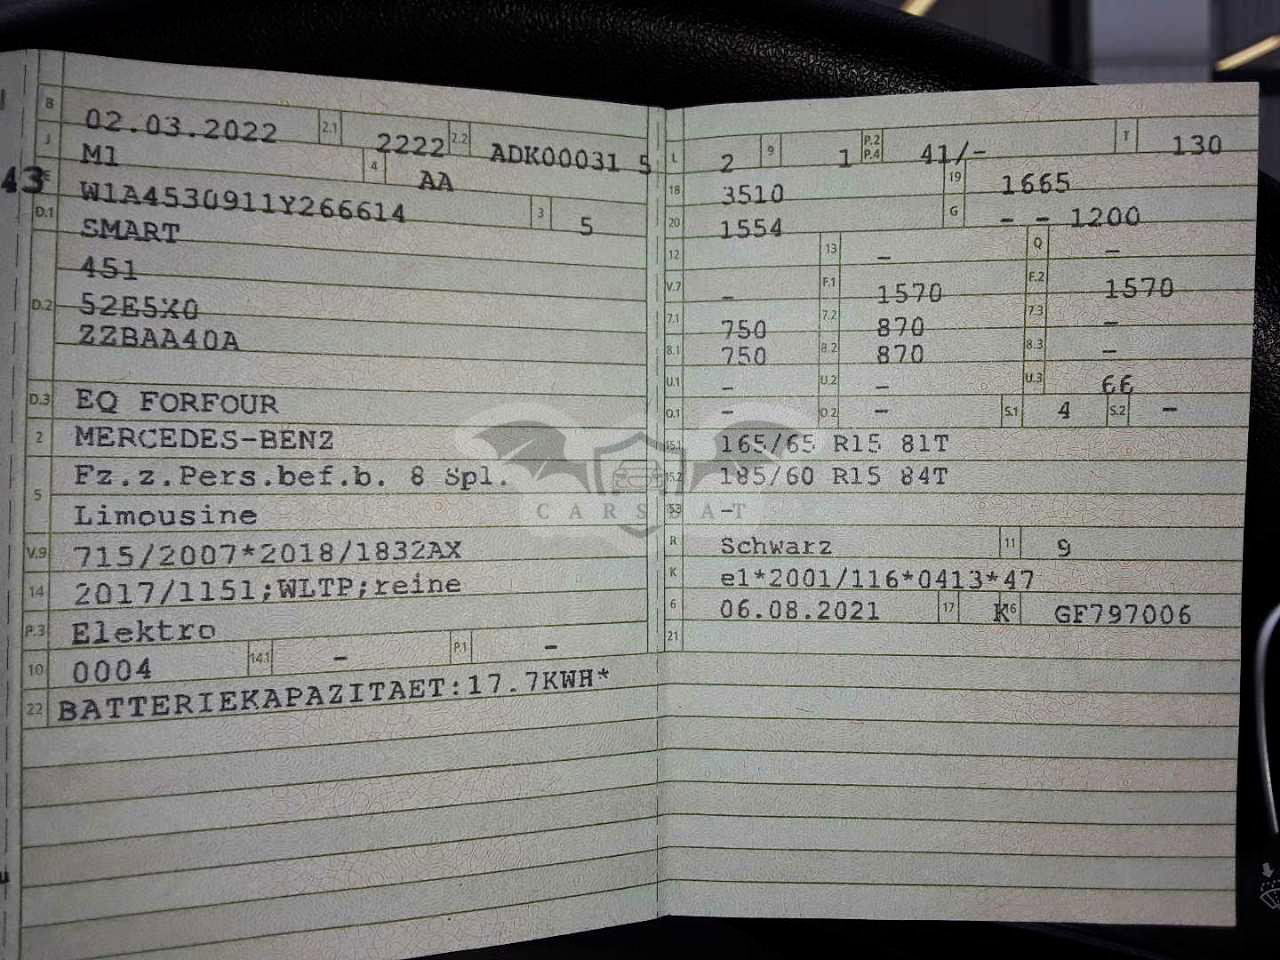 B 02.03.2022 2.1 2222 2.2 ADK00031 5
J M1 4 AA
43
E W1A4530911Y266614 3 5
D.1 SMART
451
D.2 52E5X0
ZZBAA40A
D.3 EQ FORFOUR
2 MERCEDES-BENZ
5 Fz.z.Pers.bef.b. 8 Spl.
Limousine
V.9 715/2007*2018/1832AX
14 2017/1151;WLTP;reine
P.3 Elektro
10 0004 14.1 - P.1 -
22 BATTERIEKAPAZITAET:17.7KWH*
L 2 9 1 P.2 P.4 41/- T 130
18 3510 19 1665
20 1554 G - - 1200
12 13 - Q -
V.7 - F.1 1570 F.2 1570
7.1 750 7.2 870 7.3 -
8.1 750 8.2 870 8.3 -
U.1 - U.2 - U.3 66
O.1 - O.2 - S.1 4 S.2 -
15.1 165/65 R15 81T
15.2 185/60 R15 84T
15.3 -
R Schwarz 11 9
K e1*2001/116*0413*47
6 06.08.2021 17 K 16 GF797006
21
CARSBAT